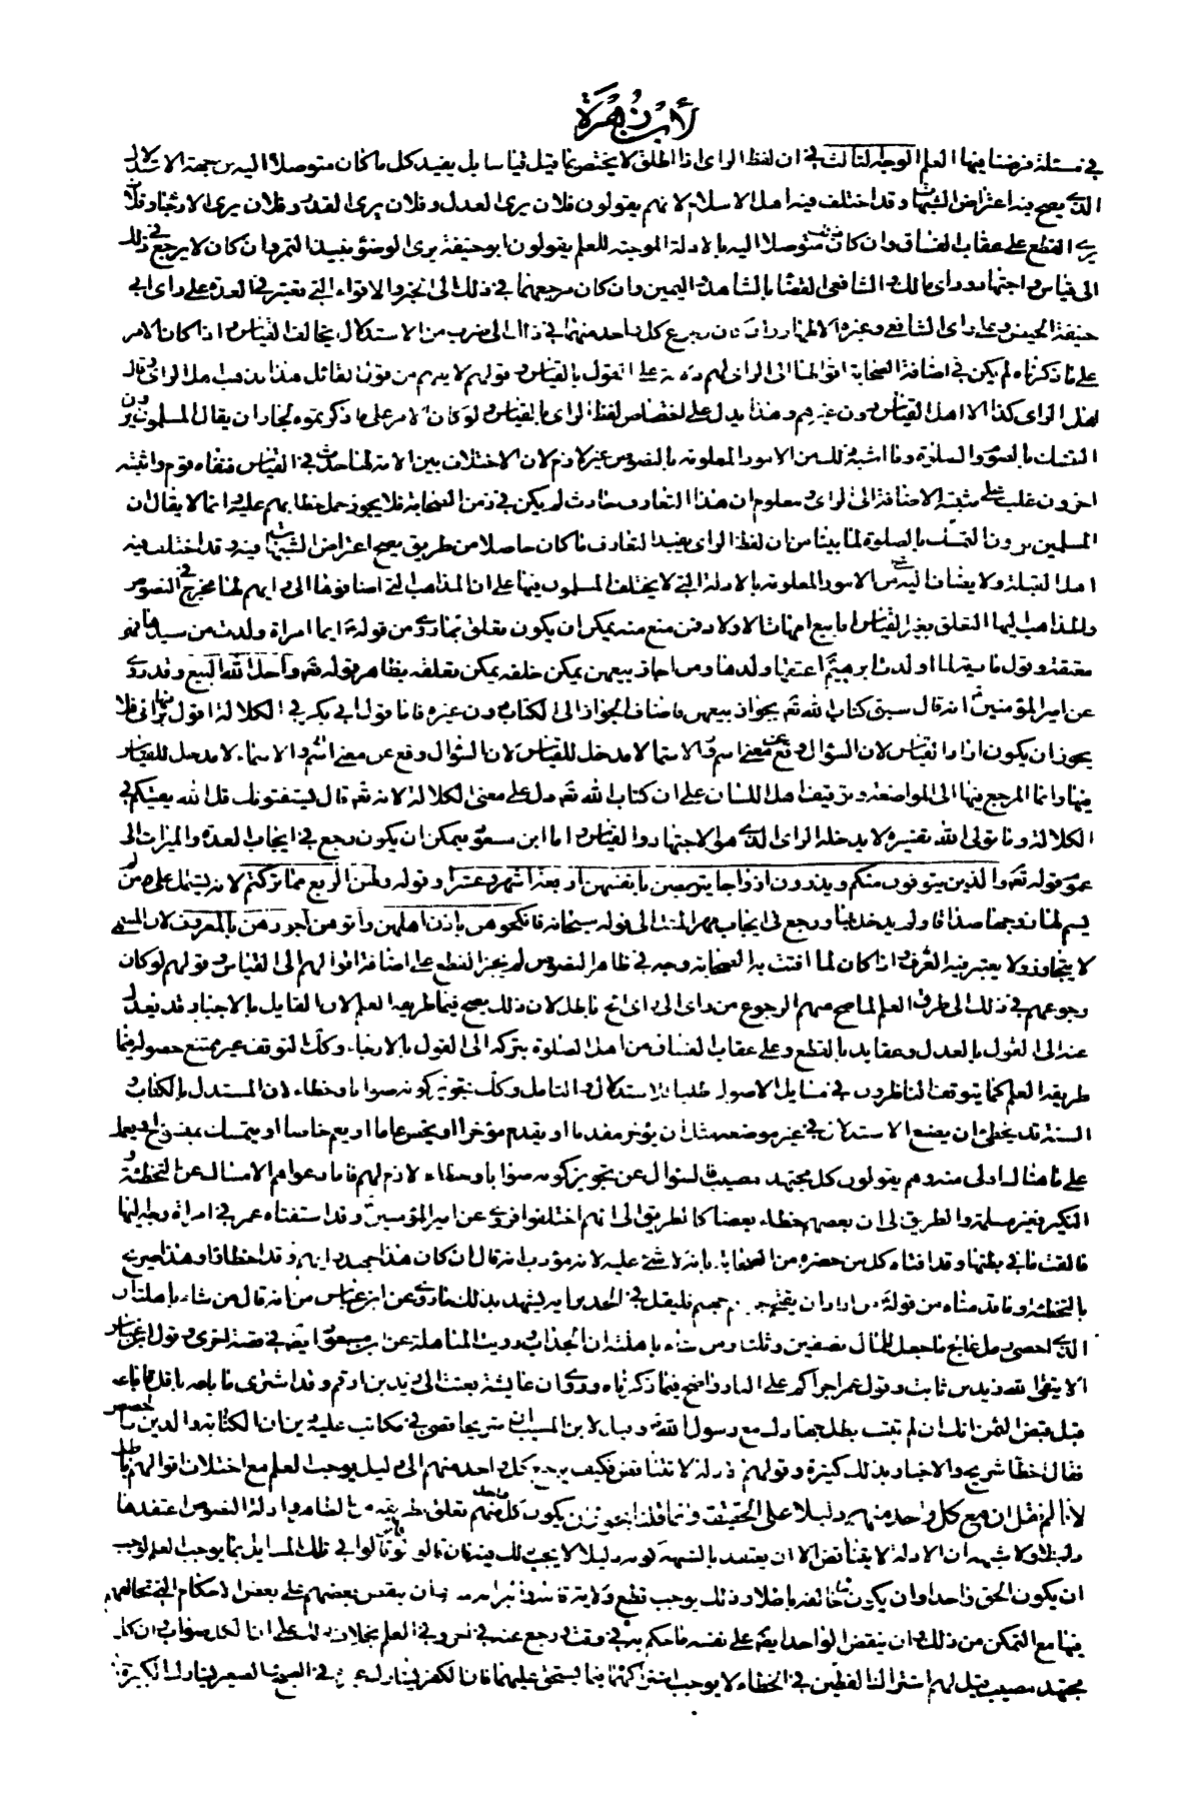 لأبن زهرة
في مسئلة فرضنا فيها العلم الوجه الثالث في ان لفظ الراى اذا اطلق لا يختص بما قيل قياسا بل يفيد كل ما كان متوصلا اليه من جهة الاستدلال
الذى يصح فيه اعتراض الشبهات وقد اختلف فيه اهل الاسلام لانهم يقولون فلان يرى العدل وفلان يرى القدر وفلان يرى الارجاء وفلان
يرى القطع على عقاب الفساق وان كان متوصلا اليه بالادلة الموجبة للعلم يقولون ابو حنيفة يرى الوضوء بنبيذ التمر وان كان لا يرجع في ذلك
الى قياس واجتهاد وراى مالك والشافعى القضا بالشاهد واليمين وان كان مرجعهما في ذلك الى الخبر والاقراء التى تعتبر في العدة على راى ابى
حنيفة الحيض وعلى راى الشافعى وغيره الاطهار وان كان رجوع كل واحد منهما في ذلك الى ضرب من الاستدلال يخالف القياس واذا كان الامر
على ما ذكرناه لم يكن في اضافة الصحابة اقوالها الى الراى لهم دلالة على القول بالقياس وقولهم لا يفهم من قول القائل هذا مذهب اهل الراى وقال
اهل الراى كذا الا اهل القياس دون غيرهم وهذا يدل على اختصاص لفظ الراى بالقياس ولو كان الامر على ما ذكرتموه لجاز ان يقال المسلمون يرون
التمسك بالصوم والصلوة وما اشبه ذلك من الامور المعلومة بالنصوص غير لازم لان الاختلاف بين الامة لما حدث في القياس فنفاه قوم واثبته
اخرون غلب على مثبتيه الاضافة الى الراى ومعلوم ان هذا التعارف حادث لم يكن في زمن الصحابة فلا يجوز حمل خطابهم عليه وانما لا يقال ان
المسلمين يرون التمسك بالصلوة لما بينا من ان لفظ الراى يفيد التعارف ما كان حاصلا من طريق يصح اعتراض الشبهات فيه وقد اختلف فيه
اهل القبلة ولا يضاف اليه شئ من الامور المعلومة بالادلة التى لا يختلف المسلمون فيها على ان المذاهب التى اضافوها الى رايهم لها مخرج في النصوص
والمذاهب فيها التعلق بغير القياس اما بيع امهات الاولاد فمن منع منه يمكن ان يكون تعلق بما روى من قوله ايما امراة ولدت من سيدها فهى
معتقة وقول مارية لما ولدت ابرهيم اعتقها ولدها ومن اجاز بيعهن يمكن تعلقه بظاهر قوله تع واحل الله البيع وقد روى
عن امير المؤمنين انه قال سبق كتاب الله تع بجواز بيعهن فاضاف الجواز الى الكتاب دون غيره فاما قول ابى بكر في الكلالة اقول فيها براى فلا
يجوز ان يكون اراد القياس لان السؤال وقع عن معنى اسم والاسماء لا مدخل للقياس
فيها وانما المرجع فيها الى المواضعة وتوقيف اهل اللسان على ان كتاب الله تع دل على معنى الكلالة لانه تع قال يستفتونك قل الله يفتيكم في
الكلالة وما تولى الله تفسيره لا يدخله الراى الذى هو الاجتهاد والقياس واما ابن مسعود فيمكن ان يكون رجع في ايجاب العدة والميراث الى
عموم قوله تع والذين يتوفون منكم ويذرون ازواجا يتربصن بانفسهن اربعة اشهر وعشرا وقوله ولهن الربع مما تركتم لانه يشتمل على من
يسم لها زوجها صداقا ولم يدخل بها ورجع في ايجاب مهر المثل الى قوله سبحانه فانكحوهن باذن اهلهن وآتوهن اجورهن بالمعروف لان المسمى
لا يتجاوز ولا يعتبر فيه العرف واذا كان لما افتت به الصحابة وجه في ظاهر النصوص لم يجز القطع على اضافة اقوالهم الى القياس وقولهم لو كان
رجوعهم في ذلك الى طرق العلم لما صح منهم الرجوع من راى الى راى اخر باطل لان ذلك يصح فيما طريقه العلم لان القايل بالاجبار قد يعدل
عنه الى القول بالعدل وعقايد بالقطع وعلى عقاب الفساق من اهل الصلوة يتركه الى القول بالارجاء وكذلك التوقف غير ممتنع حصوله فيما
طريقه العلم كما يتوقف الناظرون في مسايل الاصول طلبا للاستدلال والتامل وكذلك تجويز كونه صوابا وخطاء لان المستدل بالكتاب
السنة قد يخطئ ان يضع الاستدلال في غير موضعه مثل ان يؤخر مقدما او يقدم مؤخرا او يخص عاما او يعم خاصا او يتمسك بمنسوخ او يعمل
على ما هناك اولى منه وهم يقولون كل مجتهد مصيب فالسؤال عن تجويز كونه صوابا وخطاء لازم لهم فاما دعواهم الامساك عن التخطئة
النكير فغير مسلمة والطريق الى ان بعضهم خطاء بعضا كالطريق الى انهم اختلفوا فروى عن امير المؤمنين وقد استفتاه عمر في امراة وجه اليها
فالقت ما في بطنها وقد افتاه كل من حضره من الصحابة بانه لا شئ عليه لانه مؤدب انه قال ان كان هذا جهد رايهم فقد اخطاوا وهذا صريح
بالتخطئة وما قدمناه من قوله من اراد ان يقتحم جراثيم جهنم فليقل في الجد برايه يشهد بذلك ما روى عن ابن عباس من انه قال من شاء باهلته ان
الذى احصى رمل عالج ما جعل المال نصفين وثلثا ومن شاء باهلته ان الجد اب ورويت المباهلة عن ابن مسعود ايضا في قصة اخرى وقول ابن عباس
الا يتقى الله زيد بن ثابت وقول عمر اجراكم على النار واضح فيما ذكرناه وروى ان عايشة بعثت الى زيد بن ارقم وقد اشترى ما باعه باقل مما باعه
قبل قبض الثمن انك ان لم تتب بطل جهادك مع رسول الله وقيل لابن المسيب ان شريحا قضى في مكاتب عليه دين ان الكتابة والدين بالحصص
فقال اخطا شريح والاخبار بذلك كثيرة وقولهم الادلة لا تتناقض فكيف يرجع كل واحد منهم الى دليل يوجب العلم مع اختلاف اقوالهم باطل
لانا لم نقل ان مع كل واحد منهم دليلا على الحقيقة وانما قلنا يجوز ان يكون كل واحد منهم تعلق بطريقة من الظاهر وادلة النصوص اعتقدها
دليلا ولا شبهة ان الادلة لا يتناقض الا ان يعتقد بالشبهة كونه دليلا لا يجب ذلك فيه فان قالوا لو كانوا قالوا في تلك المسايل بما يوجب العلم لوجب
ان يكون الحق واحدا وان يكون ما خالفه باطلا وذلك يوجب قطع ولاية وان ينقض بعضهم على بعض الاحكام التى تخالفهم
فيها مع التمكن من ذلك وان ينقض الواحد ايضا على نفسه ما حكم به في وقت ورجع عنه في اخر وفي العلم بخلاف ذلك على ان الكل صواب وان كل
مجتهد مصيب قيل لهم اشتراك الفعلين في الخطاء لا يوجب اشتراكهما فيما يستحق عليهما فان الكفر يشارك غيره في القبح والصغير يشارك الكبيرة